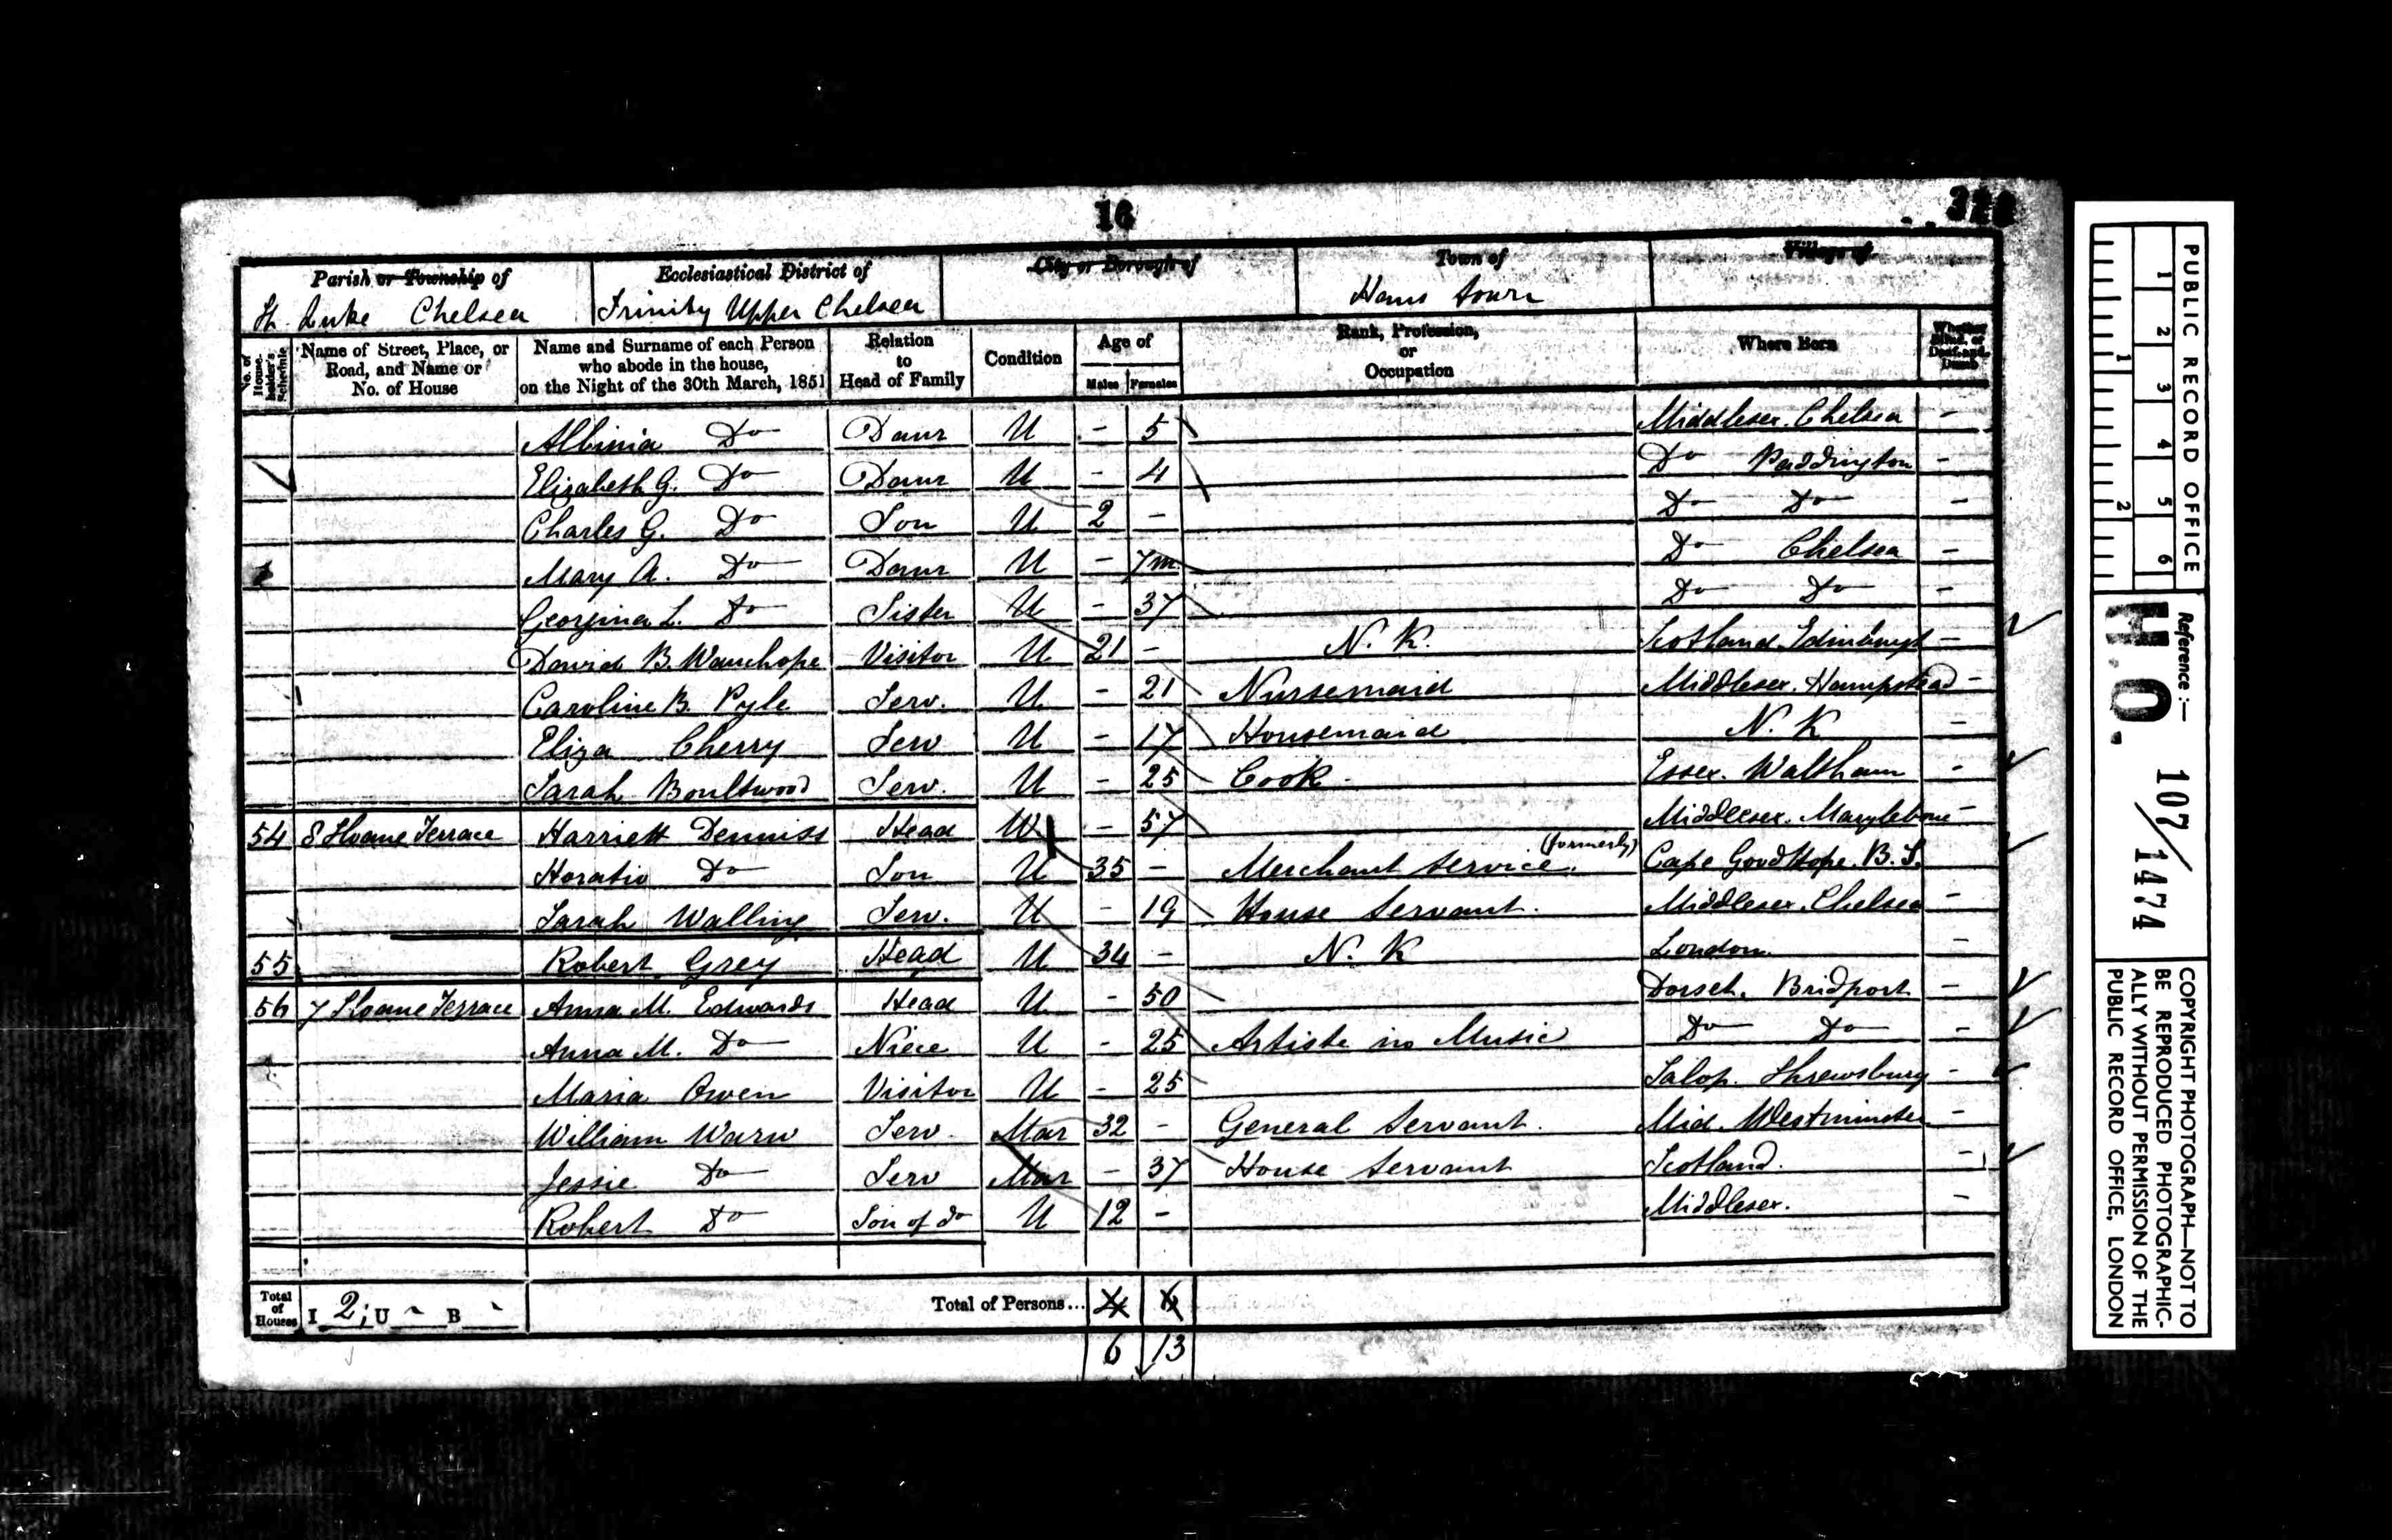 16
Parish or Township of
Ecclesiastical District of
City or Borough of
Town of
Village of
St. Luke Chelsea
Trinity Upper Chelsea
Hans Town
No. of House-holder's Schedule
Name of Street, Place, or Road, and Name or No. of House
Name and Surname of each Person who abode in the house, on the Night of the 30th March, 1851
Relation to Head of Family
Condition
Age of
Males Females
Rank, Profession, or Occupation
Where Born
Whether Blind, or Deaf-and-Dumb
Albinia Do Daur U - 5 Middlesex. Chelsea -
Elizabeth G. Do Daur U - 4 Do Paddington -
Charles G. Do Son U 2 - Do Do -
Mary A. Do Daur U - 7m Do Chelsea -
Georgina L. Do Sister U - 37 Do Do -
David B. Wauchope Visitor U 21 - N. K. Scotland. Edinburgh -
Caroline B. Pyle Serv. U - 21 Nursemaid Middlesex. Hampstead -
Eliza Cherry Serv U - 17 Housemaid N. K -
Sarah Boultwood Serv. U - 25 Cook - Essex. Waltham -
54 8 Sloane Terrace Harriett Denniss Head W - 57 Middlesex. Marylebone -
Horatio Do Son U 35 - Merchant Service. (formerly) Cape Good Hope. B. S.
Sarah Walling Serv. U - 19 House Servant. Middlesex. Chelsea -
55 Robert Grey Head U 34 - N. K London. -
56 7 Sloane Terrace Anna M. Edwards Head U - 50 Dorset. Bridport -
Anna M. Do Niece U - 25 Artiste in Music Do Do -
Maria Owen Visitor U - 25 Salop. Shrewsbury -
William Warn Serv. Mar 32 - General Servant. Mid. Westminster -
Jessie Do Serv Mar - 37 House Servant Scotland. -
Robert Do Son of do U 12 - Middlesex. -
Total of Houses I 2; U - B -
Total of Persons...
6 13
PUBLIC RECORD OFFICE
1 2 3 4 5 6
1 2
Reference:—
H.O. 107/1474
COPYRIGHT PHOTOGRAPH—NOT TO
BE REPRODUCED PHOTOGRAPHIC-
ALLY WITHOUT PERMISSION OF THE
PUBLIC RECORD OFFICE, LONDON